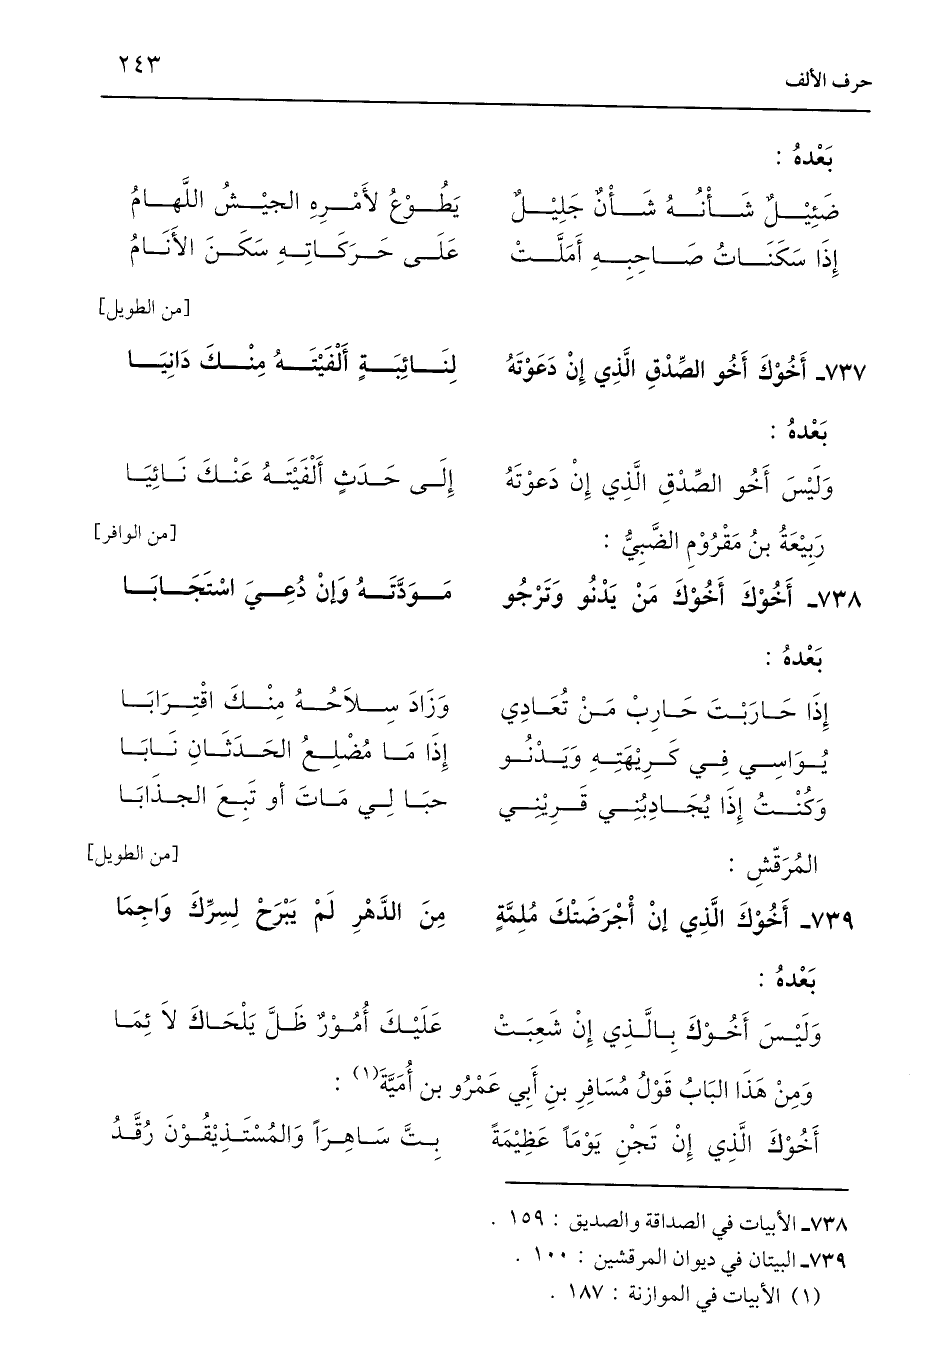 ٢٤٣
حرف الألف
بَعْدهُ :
ضَئِيْلٌ شَأْنُهُ شَأْنٌ جَلِيْلٌ يَطُوْعُ لأَمْرِهِ الجَيْشُ اللَّهامُ
إِذَا سَكَنَاتُ صَاحِبِهِ أَمَلَّتْ عَلَى حَرَكَاتِهِ سَكَنَ الأَنَامُ
[من الطويل]
٧٣٧ـ أَخُوْكَ أَخُو الصِّدْقِ الَّذِي إِنْ دَعَوْتَهُ لِنَائِبَةٍ أَلْفَيْتَهُ مِنْكَ دَانِيَا
بَعْدهُ :
وَلَيْسَ أَخُو الصِّدْقِ الَّذِي إِنْ دَعَوْتَهُ إِلَى حَدَثٍ أَلْفَيْتَهُ عَنْكَ نَائِيَا
رَبِيْعَةُ بنُ مَقْرُوْمٍ الضَّبِيُّ : [من الوافر]
٧٣٨ـ أَخُوْكَ أَخُوْكَ مَنْ يَدْنُو وَتَرْجُو مَوَدَّتَهُ وَإِنْ دُعِيَ اسْتَجَابَا
بَعْدهُ :
إِذَا حَارَبْتَ حَارِبْ مَنْ تُعَادِي وَزَادَ سِلاَحُهُ مِنْكَ اقْتِرَابَا
يُوَاسِي فِي كَرِيْهَتِهِ وَيَدْنُو إِذَا مَا مُضْلِعُ الحَدَثَانِ نَابَا
وَكُنْتُ إِذَا يُجَادِبُنِي قَرِيْنِي حبَا لِي مَاتَ أو تَبِعَ الجذَابَا
المُرَقّشِ : [من الطويل]
٧٣٩ـ أَخُوْكَ الَّذِي إِنْ أُجْرَضَتْكَ مُلِمَّةٍ مِنَ الدَّهْرِ لَمْ يَبْرَحْ لِسِرِّكَ وَاجِمَا
بَعْدهُ :
وَلَيْسَ أَخُوْكَ بِالَّذِي إِنْ شَعِبَتْ عَلَيْكَ أُمُوْرٌ ظَلَّ يَلْحَاكَ لاَ ئِمَا
وَمِنْ هَذَا البَابُ قَوْلُ مُسَافِرِ بنِ أَبِي عَمْرُو بن أُمَيَّةَ(١) :
أَخُوْكَ الَّذِي إِنْ تَجْنِ يَوْمَاً عَظِيْمَةً بِتَّ سَاهِرَاً وَالمُسْتَذِيْقُوْنَ رُقَّدُ
٧٣٨ـ الأبيات في الصداقة والصديق : ١٥٩ .
٧٣٩ـ البيتان في ديوان المرقشين : ١٠٠ .
(١) الأبيات في الموازنة : ١٨٧ .